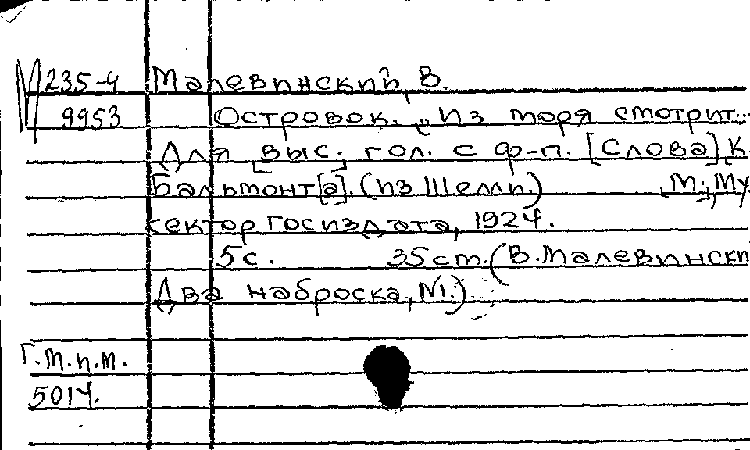 М 235-4 Малевинский, В.
9953 Островок. „Из моря смотрит...
Для выс. гол. с ф-п. [Слова] К.
Бальмонт[а]. (из Шелли) М., Му
сектор Госиздата, 1924.
5 с. 35 cm. (В. Малевински
Два наброска, №1.).
Г.М.п.М.
5014.